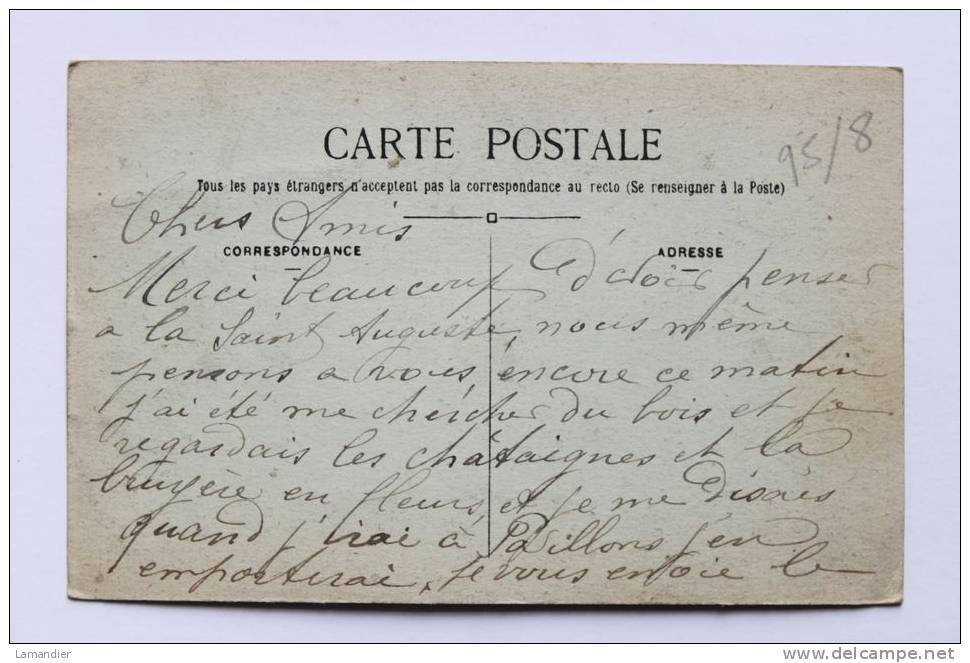 CARTE POSTALE
95/8
Tous les pays étrangers n'acceptent pas la correspondance au recto (Se renseigner à la Poste)
Chers Amis
CORRESPONDANCE
ADRESSE
Merci beaucoup d'avoir penser
a la Saint Auguste, nous même
pensons a vous, encore ce matin
j'ai été me chercher du bois et je
regardais les châtaignes et la
bruyère en fleurs, et je me disais
quand j'irai à Pavillons j'en
emporterai, je vous envoie le
Lamandier
www.delcampe.net